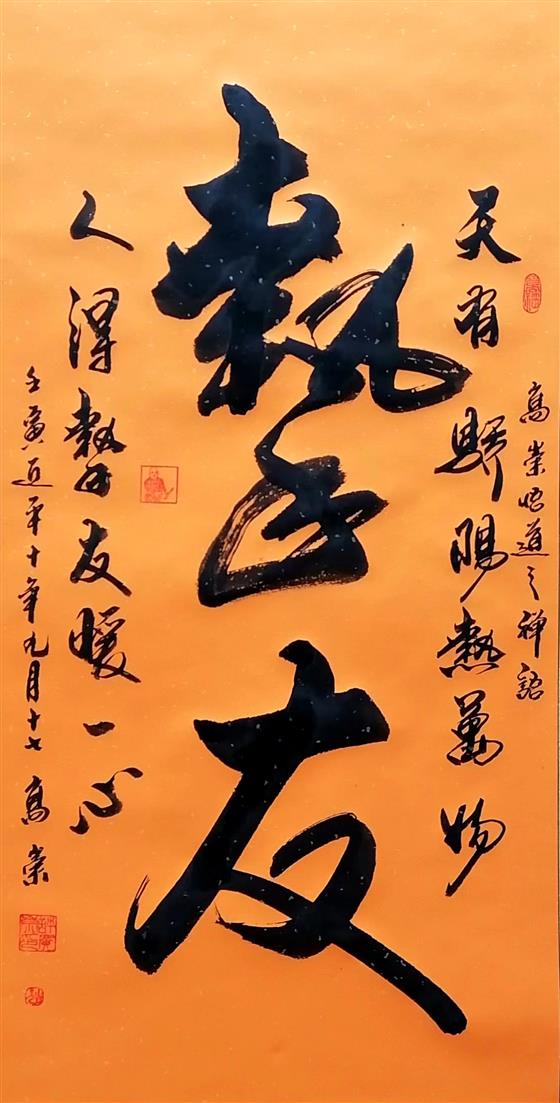 高崇悟道之禅語
天有驕陽熱萬物
摯友
人得摯友暖一心
壬寅近平十年九月十七 高崇